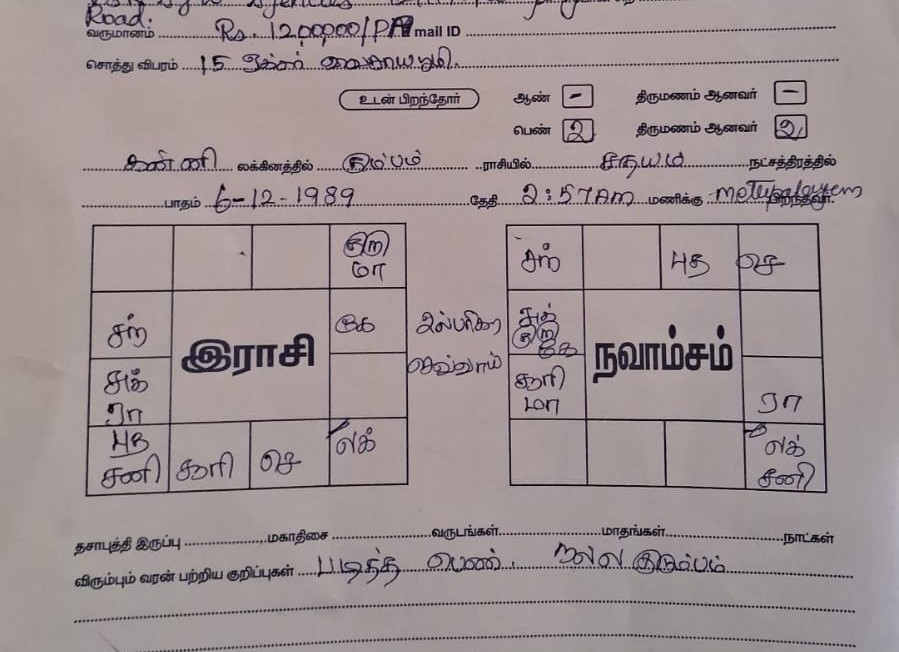 Road.
வருமானம் Rs. 1200000/PA mail ID
சொத்து விபரம் 15 ஏக்கர்
உடன் பிறந்தோர் ஆண் - திருமணம் ஆனவர் -
பெண் 2 திருமணம் ஆனவர் 2
கன்னி லக்கினத்தில் கும்பம் ராசியில் சதயம் நட்சத்திரத்தில்
பாதம் 6-12-1989 தேதி 2:57AM மணிக்கு பிறந்தவர்.
குரு
மா
சந்
கே
இராசி
சுக்
ரா
புத
சனி
சூரி
செ
லக்
செவ்வாய்
சந்
புத
செ
சுக்
குரு
கே
நவாம்சம்
சூரி
மா
ரா
லக்
சனி
தசாபுத்தி இருப்பு மகாதிசை வருடங்கள் மாதங்கள் நாட்கள்
விரும்பும் வரன் பற்றிய குறிப்புகள் படித்த பெண். நல்ல குடும்பம்